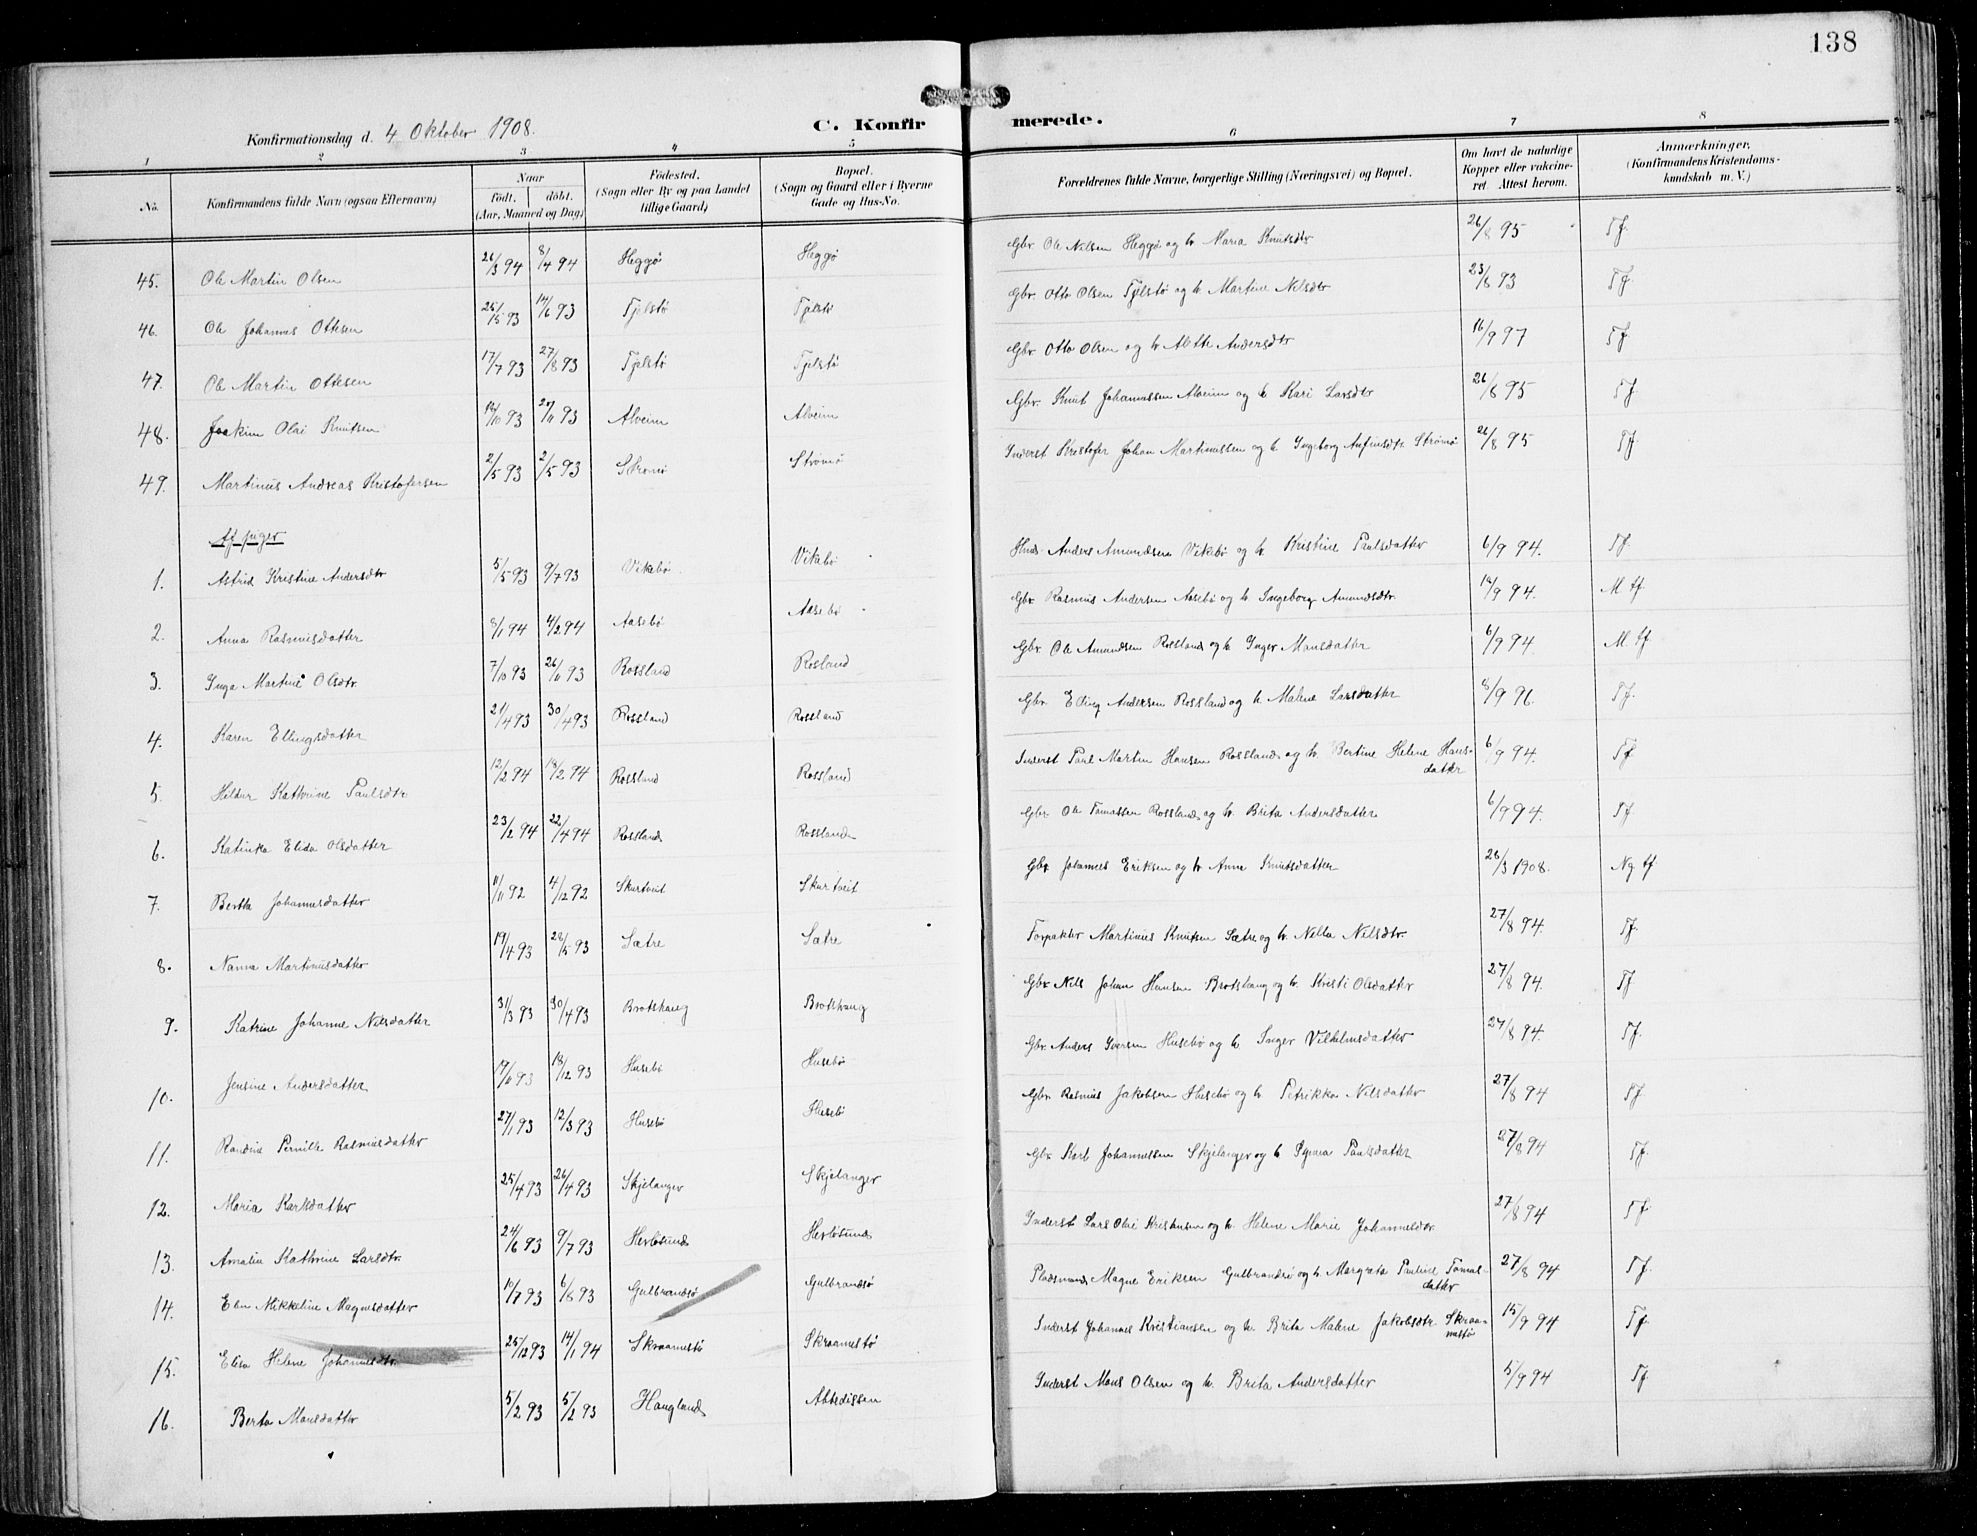 138
C. Konfirmerede.
Konfirmationsdag d. 4 Oktober 1908.
1 2 3 4 5 6 7 8
No. Konfirmandens fulde Navn (ogsaa Efternavn) Naar födt. döbt. (Aar, Maaned og Dag) Födested. (Sogn eller By og paa Landet tillige Gaard) Bopæl. (Sogn og Gaard eller i Byerne Gade og Hus-No. Forældrenes fulde Navne, borgerlige Stilling (Næringsvei) og Bopæl. Om havt de naturlige Kopper eller vakcineret Attest herom. Anmærkninger. (Konfirmandens Kristendomskundskab m. V.)
45. Ole Martin Olsen 26/3 94 8/4 94 Heggö Heggö Gbr. Ole Nilsen Heggö og h. Maria Knutsdtr 26/8 95 Tf.
46. Ole Johannes Ottesen 25/5 93 14/6 93 Tjelstö Tjelstö Gbr. Otto Olsen Tjelstö og h. Martine Nilsdtr 23/8 93 Tf
47. Ole Martin Ottesen 17/7 93 27/8 93 Tjelstö Tjelstö Gbr. Otto Olsen og h. Andersdtr 16/9 97 Tf
48. Joakim Olai Knutsen 10 93 11 93 Alveim Alveim Gbr. Knut Johannessen Alveim og h. Kari Larsdtr 26/8 95 Tf
49. Martinus Andreas Kristofersen 2/5 93 2/5 93 Strömö Strömö Inderst Kristofer Johan Martinussen og h. Ingeborg Anfinsdtr. Strömö 26/8 95 Tf
Af piger
1. Astrid Kristine Andersdtr 5/5 93 9/7 93 Vikebö Vikebö Anders Amundsen Vikebö og h. Kristine Paulsdatter 6/9 94. Tf
2. Anna Rasmusdatter 8/1 94 4/2 94 Aasebö Aasebö Gbr. Rasmus Andersen Aasebö og h. Ingeborg Amundsdtr. 9 94. M tf
3. Inga Martine Olsdtr. 7/10 93 26 93 Rossland Rosland Gbr. Ole Amundsen Rossland og h. Inger Monsdatter 6/9 94. M tf
4. Karen Ellingsdatter 21/4 93 30/4 93 Rossland Rossland Gbr. Elling Andersen Rossland og h. Malene Larsdatter 8/9 96. Tf.
5. Hildur Kathrine Paulsdtr 12/2 94 18/2 94 Rossland Rossland Inderst Paul Martin Hansen Rossland og h. Bertine Helene Hansdatter 6/9 94. Tf
6. Katinka Elida Olsdatter 23/2 94 22/4 94 Rossland Rossland Gbr. Ole Tomassen Rossland og h. Brita Andersdatter 6/9 94. Tf
7. Berthe Johannesdatter 11/11 92 4/12 92 Skurtveit Skurtveit Gbr. Johannes Eriksen og h. Anna Knutsdatter 28/3 1908. Ng tf.
8. Nanna Martinusdatter 19/4 93 28/5 93 Sætre Sætre Forpakter Martinus Knutsen Sætre og h. Nilla Nilsdtr. 27/8 94. Tf.
9. Katrine Johanne Nilsdatter 31/3 93 30/4 93 Brotshaug Brotshaug Gbr. Nils Johan Hansen Brotshaug og h. Kristi Olsdatter 27/8 94. Tf
10. Jensine Andersdatter 93 12 93 Husebö Husebö Gbr. Anders Iversen Husebö og h. Inger Vilhelmsdatter 27/8 94. Tf.
11. Randine Pernille Rasmusdatter 27/1 93 12/3 93 Husebö Husebö Gbr. Rasmus Jakobsen Husebö og h. Petrikka Nilsdatter 27/8 94 Tf
12. Maria Karlsdatter 25/4 93 26/4 93 Skjelanger Skjelanger Gbr. Johannessen Skjelanger og h. Paulsdatter 27/8 94 Tf.
13. Amalia Kathrine Larsdtr. 24/6 93 9/7 93 Herlösund Herlösund Inderst Lars Olai Kristensen og h. Helene Marie Johannesdtr. 27/8 94 Tf.
14. Mikkeline Magnesdatter 7 93 6/8 93 Gulbrandsö Gulbrandsö Pladsmand Magne Eriksen Gulbrandsö og h. Margrata Pauline Tomasdatter 27/8 94 Tf.
15. Elisa Helene Johannesdtr. 25/12 93 14/1 94 Skraamestö Skraamestö Inderst Johannes Kristiansen og h. Brita Malene Jakobsdtr Skraamestö 15/9 94 Tf.
16. Berta Monsdatter 5/2 93 5/2 93 Haugland Inderst Mons Olsen og h. Brita Andersdatter 5/9 94 Tf.